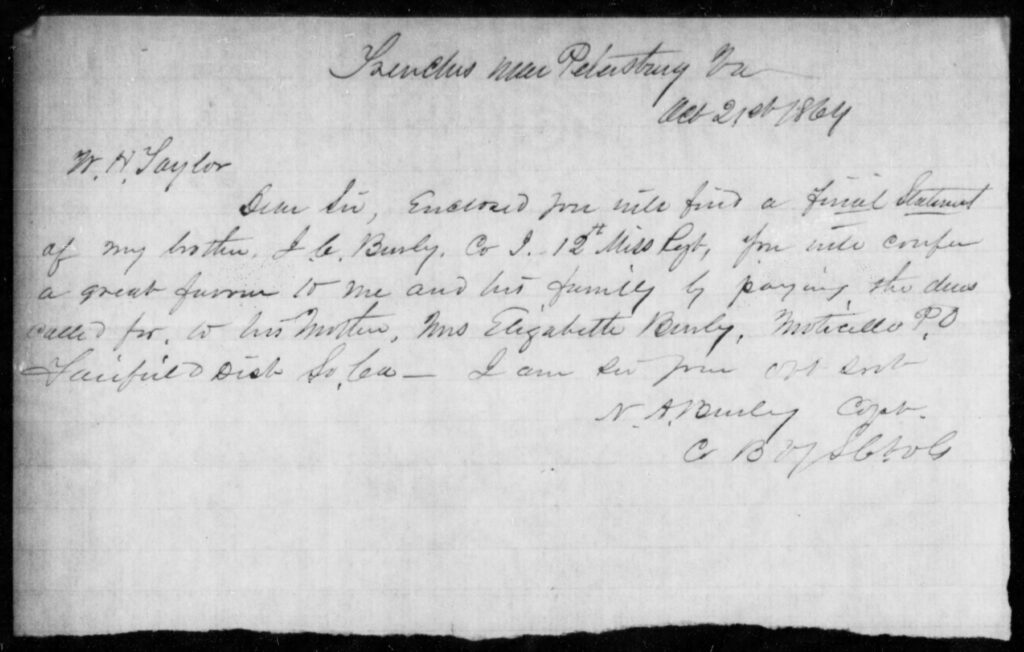 Trenches near Petersburg Va
Oct 21st 1864
W. H. Taylor
Dear Sir, Enclosed you will find a final Statement
of my brother, J. C. Burly. Co I. 12th Miss Regt, you will confer
a great favour to me and his family by paying the dues
called for, to his Mother, Mrs Elizabeth Burly, Moticello P.O
Fairfield Dist So. Ca — I am sir your obt svt
N. A. Burley Capt.
Co B S C